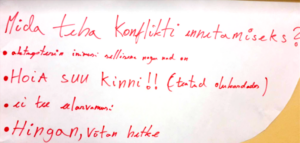 Mida teha konflikti ennetamiseks?
• aktsepteerin inimesi sellisena nagu nad on
• HOIA SUU KINNI!! (teatud olukordades)
• ei tee eelarvamusi
• Hingan, võtan hetke